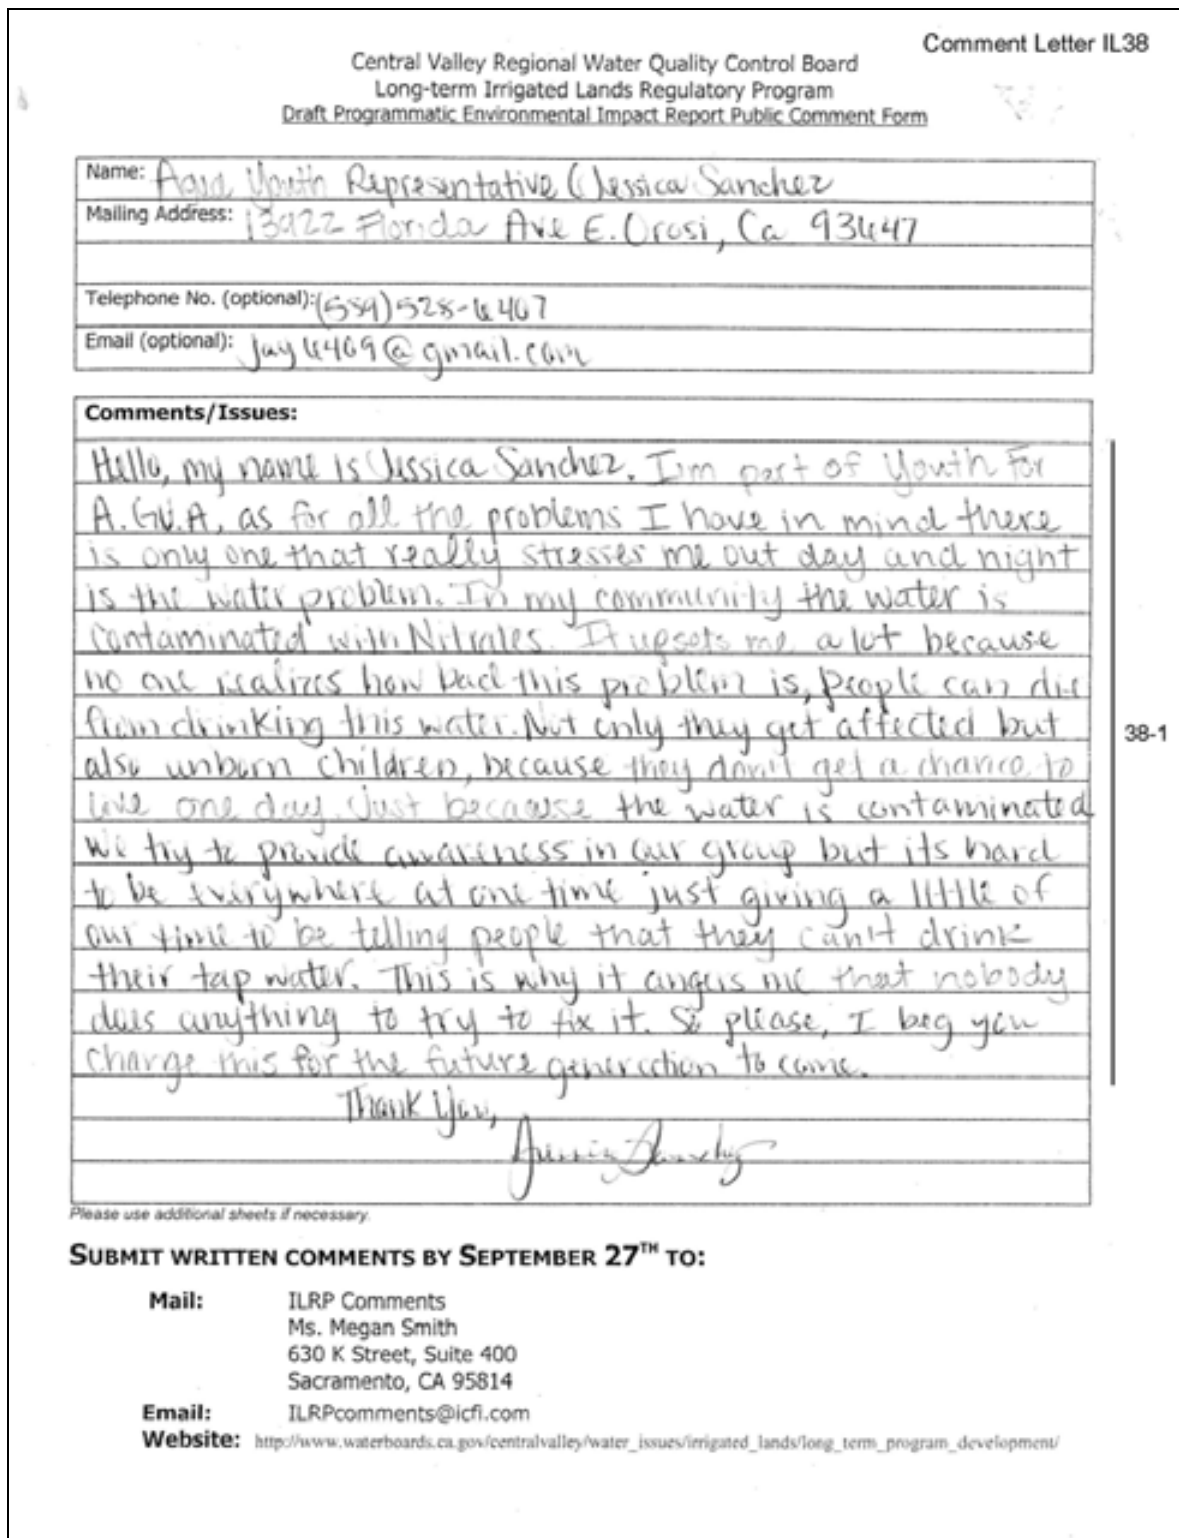 Comment Letter IL38
Central Valley Regional Water Quality Control Board
Long-term Irrigated Lands Regulatory Program
Draft Programmatic Environmental Impact Report Public Comment Form
Name: Agua Youth Representative (Jessica Sanchez
Mailing Address: 13922 Florida Ave E. Orosi, Ca 93647
Telephone No. (optional): (559) 528-6407
Email (optional): jay6469@gmail.com
Comments/Issues:
Hello, my name is Jessica Sanchez. I'm part of Youth For
A.GU.A, as for all the problems I have in mind there
is only one that really stresses me out day and night
is the water problem. In my community the water is
contaminated with Nitrates. It upsets me a lot because
no one realizes how bad this problem is, people can die
from drinking this water. Not only they get affected but
also unborn children, because they don't get a chance to
live one day. Just because the water is contaminated
We try to provide awareness in our group but its hard
to be everywhere at one time just giving a little of
our time to be telling people that they can't drink
their tap water. This is why it angers me that nobody
does anything to try to fix it. So please, I beg you
change this for the future generation to come.
Thank You,
Jessica Sanchez
38-1
Please use additional sheets if necessary.
SUBMIT WRITTEN COMMENTS BY SEPTEMBER 27TH TO:
Mail: ILRP Comments
Ms. Megan Smith
630 K Street, Suite 400
Sacramento, CA 95814
Email: ILRPcomments@icfi.com
Website: http://www.waterboards.ca.gov/centralvalley/water_issues/irrigated_lands/long_term_program_development/